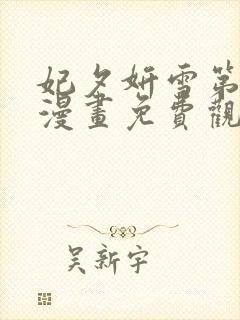 妃夕妍雪第
漫畫免費觀
吴新宇